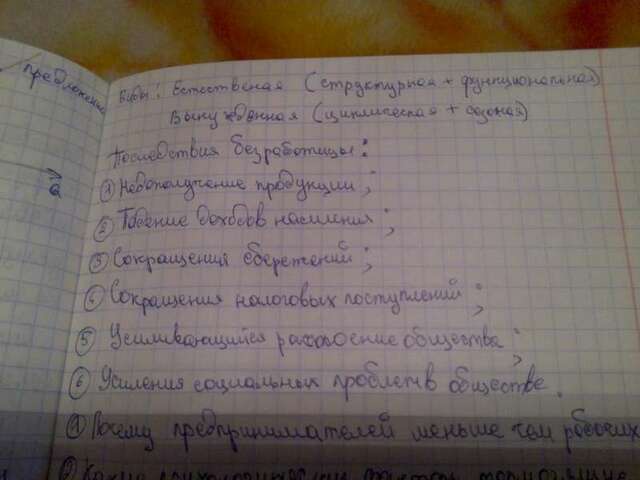 предложение
Q
Виды: Естественая (структурная + функциональная)
Вынужденная (циклическая + сезоная)
Последствия безработицы:
① Недополучение продукции;
② Падение доходов населения;
③ Сокращения сбережений;
④ Сокращения налоговых поступлений;
⑤ Усиливающийся общества;
⑥ Усиления социальных проблем в обществе.
① Почему предпринимателей меньше чем рабочих
② Какие психологические факторы